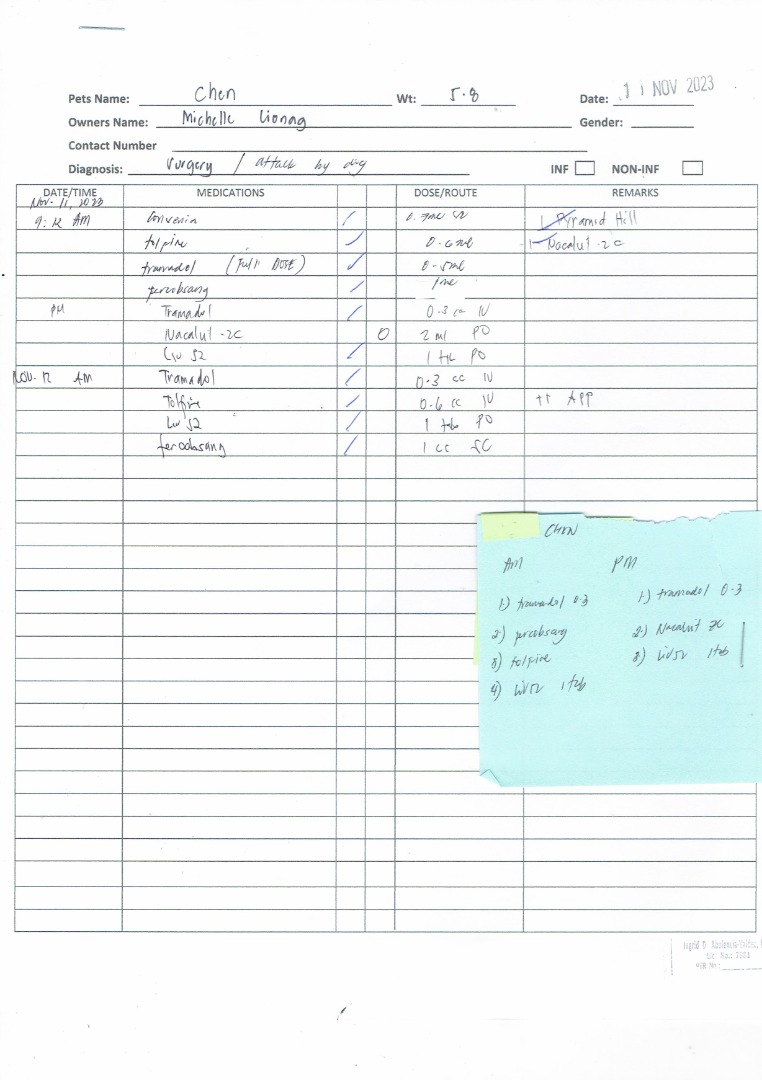 Pets Name: Chen Wt: 5.8 Date: 11 NOV 2023
Owners Name: Michelle Gender:
Contact Number
Diagnosis: Surgery / attack by dog INF NON-INF
DATE/TIME MEDICATIONS DOSE/ROUTE REMARKS
Nov. 11, 2023
9:12 AM Convenia / 0. 1 Pyramid Hill
tolfine / 0.6 ml 1 Nacalut -2C
tramadol (Full DOSE) / 0.5ml
/ 1ml
PM Tramadol / 0.3 cc IV
Nacalut -2C O 2 ml PO
Liv 52 / 1 tb PO
Nov. 12 AM Tramadol / 0.3 cc IV
Tolfine / 0.6 cc IV ++ APP
Liv 52 / 1 tab PO
fercobsang / 1 cc SC
CHEN
AM PM
1) tramadol 0.3 1) tramadol 0.3
2) 2) Nacalut 2C
3) tolfine 3) Liv52 1tab
4) Liv52 1tab
Lic. No.: